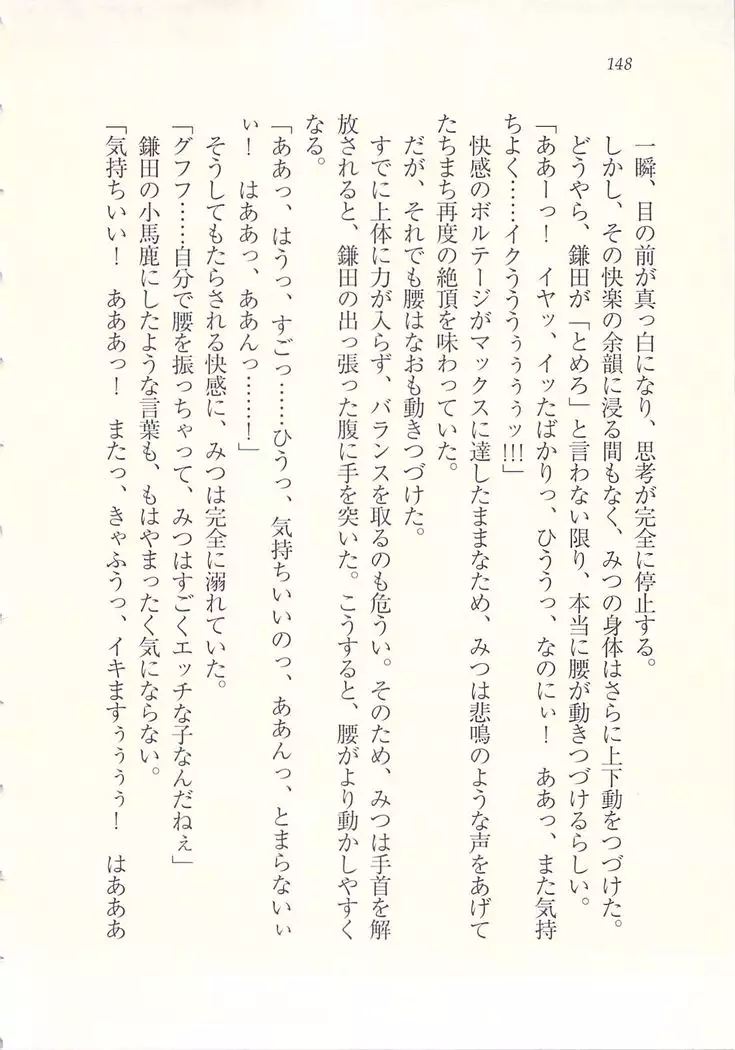 148
一瞬、目の前が真っ白になり、思考が完全に停止する。
しかし、その快楽の余韻に浸る間もなく、みつの身体はさらに上下動をつづけた。
どうやら、鎌田が「とめろ」と言わない限り、本当に腰が動きつづけるらしい。
「ああーっ！　イヤッ、イッたばかりっ、ひううっ、なのにぃ！　ああっ、また気持
ちよく……イクうううぅぅぅぅッ!!!」
快感のボルテージがマックスに達したままなため、みつは悲鳴のような声をあげて
たちまち再度の絶頂を味わっていた。
だが、それでも腰はなおも動きつづけた。
すでに上体に力が入らず、バランスを取るのも危うい。そのため、みつは手首を解
放されると、鎌田の出っ張った腹に手を突いた。こうすると、腰がより動かしやすく
なる。
「ああっ、はうっ、すごっ……ひうっ、気持ちいいのっ、ああんっ、とまらないぃ
ぃ！　はああっ、ああんっ……！」
そうしてもたらされる快感に、みつは完全に溺れていた。
「グフフ……自分で腰を振っちゃって、みつはすごくエッチな子なんだねぇ」
鎌田の小馬鹿にしたような言葉も、もはやまったく気にならない。
「気持ちいい！　あああっ！　またっ、きゃふうっ、イキますぅぅぅぅ！　はあああ